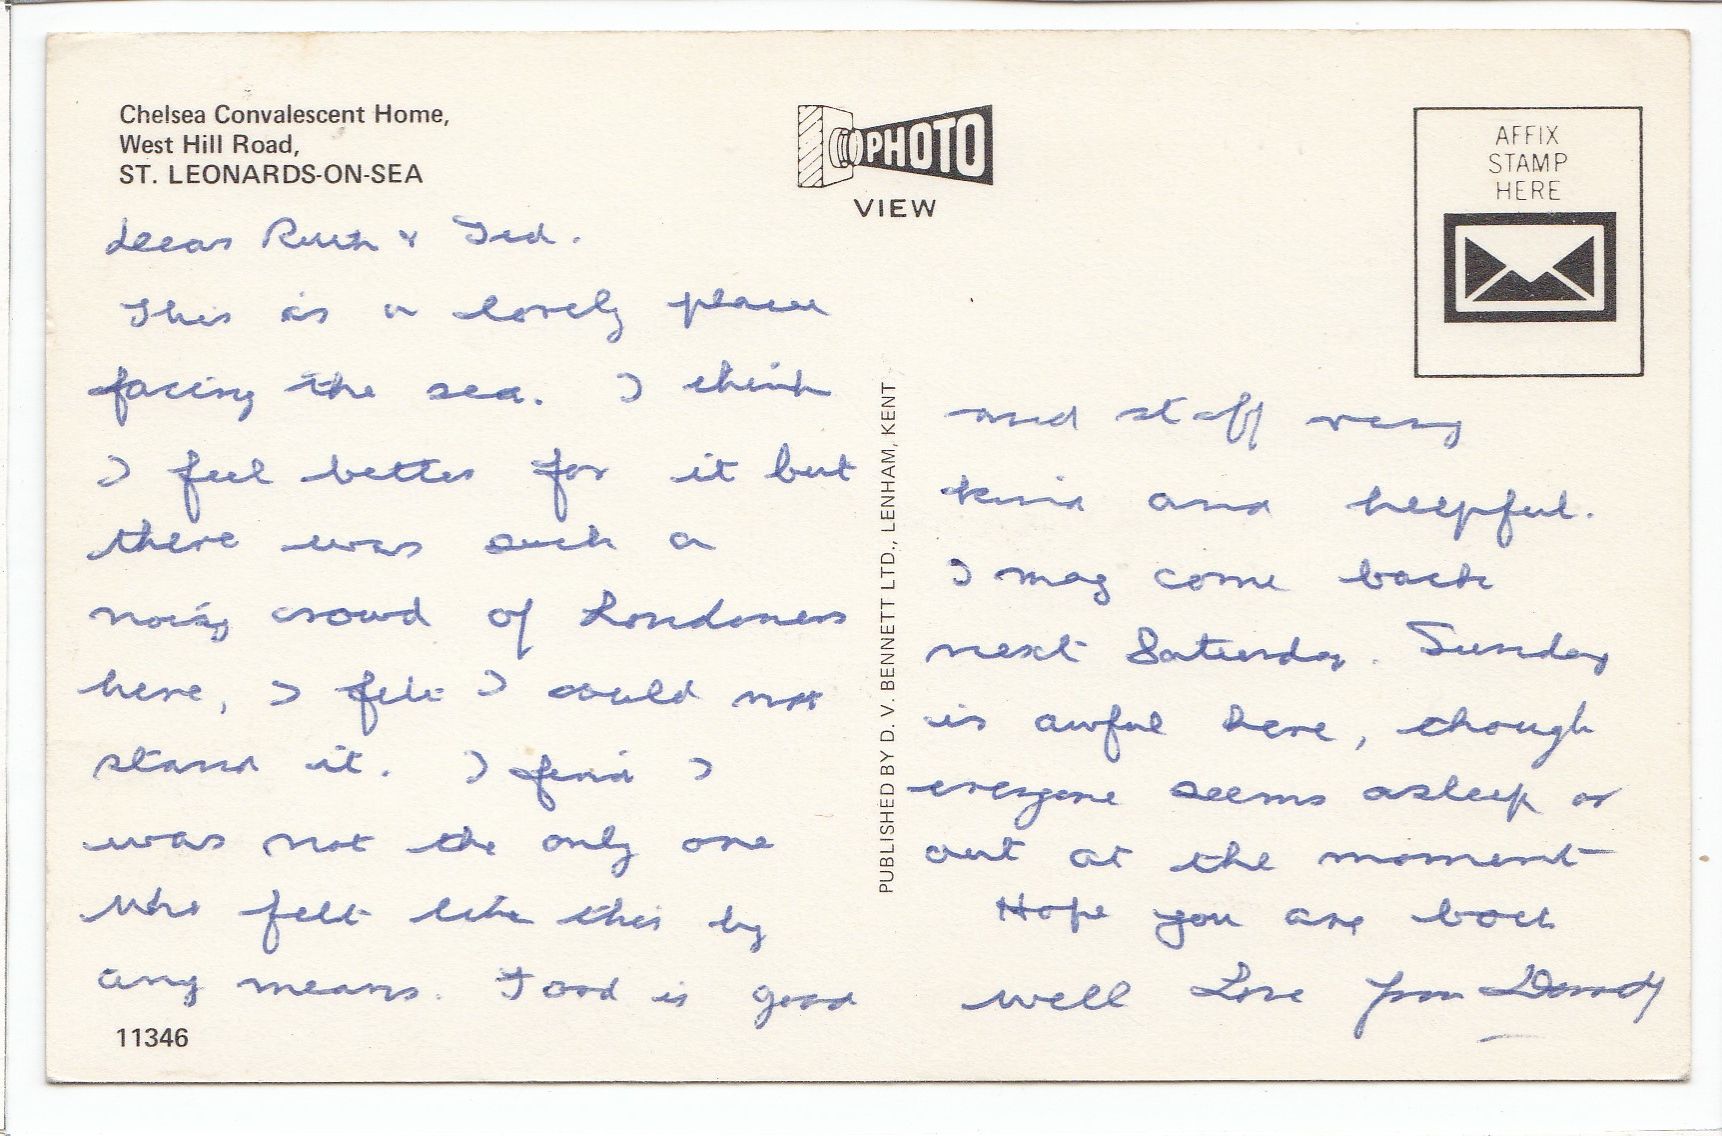 Chelsea Convalescent Home,
West Hill Road,
ST. LEONARDS-ON-SEA
PHOTO
VIEW
AFFIX
STAMP
HERE
Dear Ruth & Ted.
This is a lovely place
facing the sea. I think
I feel better for it but
there was such a
noisy crowd of Londoners
here, I felt I could not
stand it. I find I
was not the only one
who felt like this by
any means. Food is good
11346
PUBLISHED BY D. V. BENNETT LTD., LENHAM, KENT
and staff very
kind and helpful.
I may come back
next Saturday. Sunday
is awful here, though
everyone seems asleep or
out at the moment
Hope you are both
well Love from